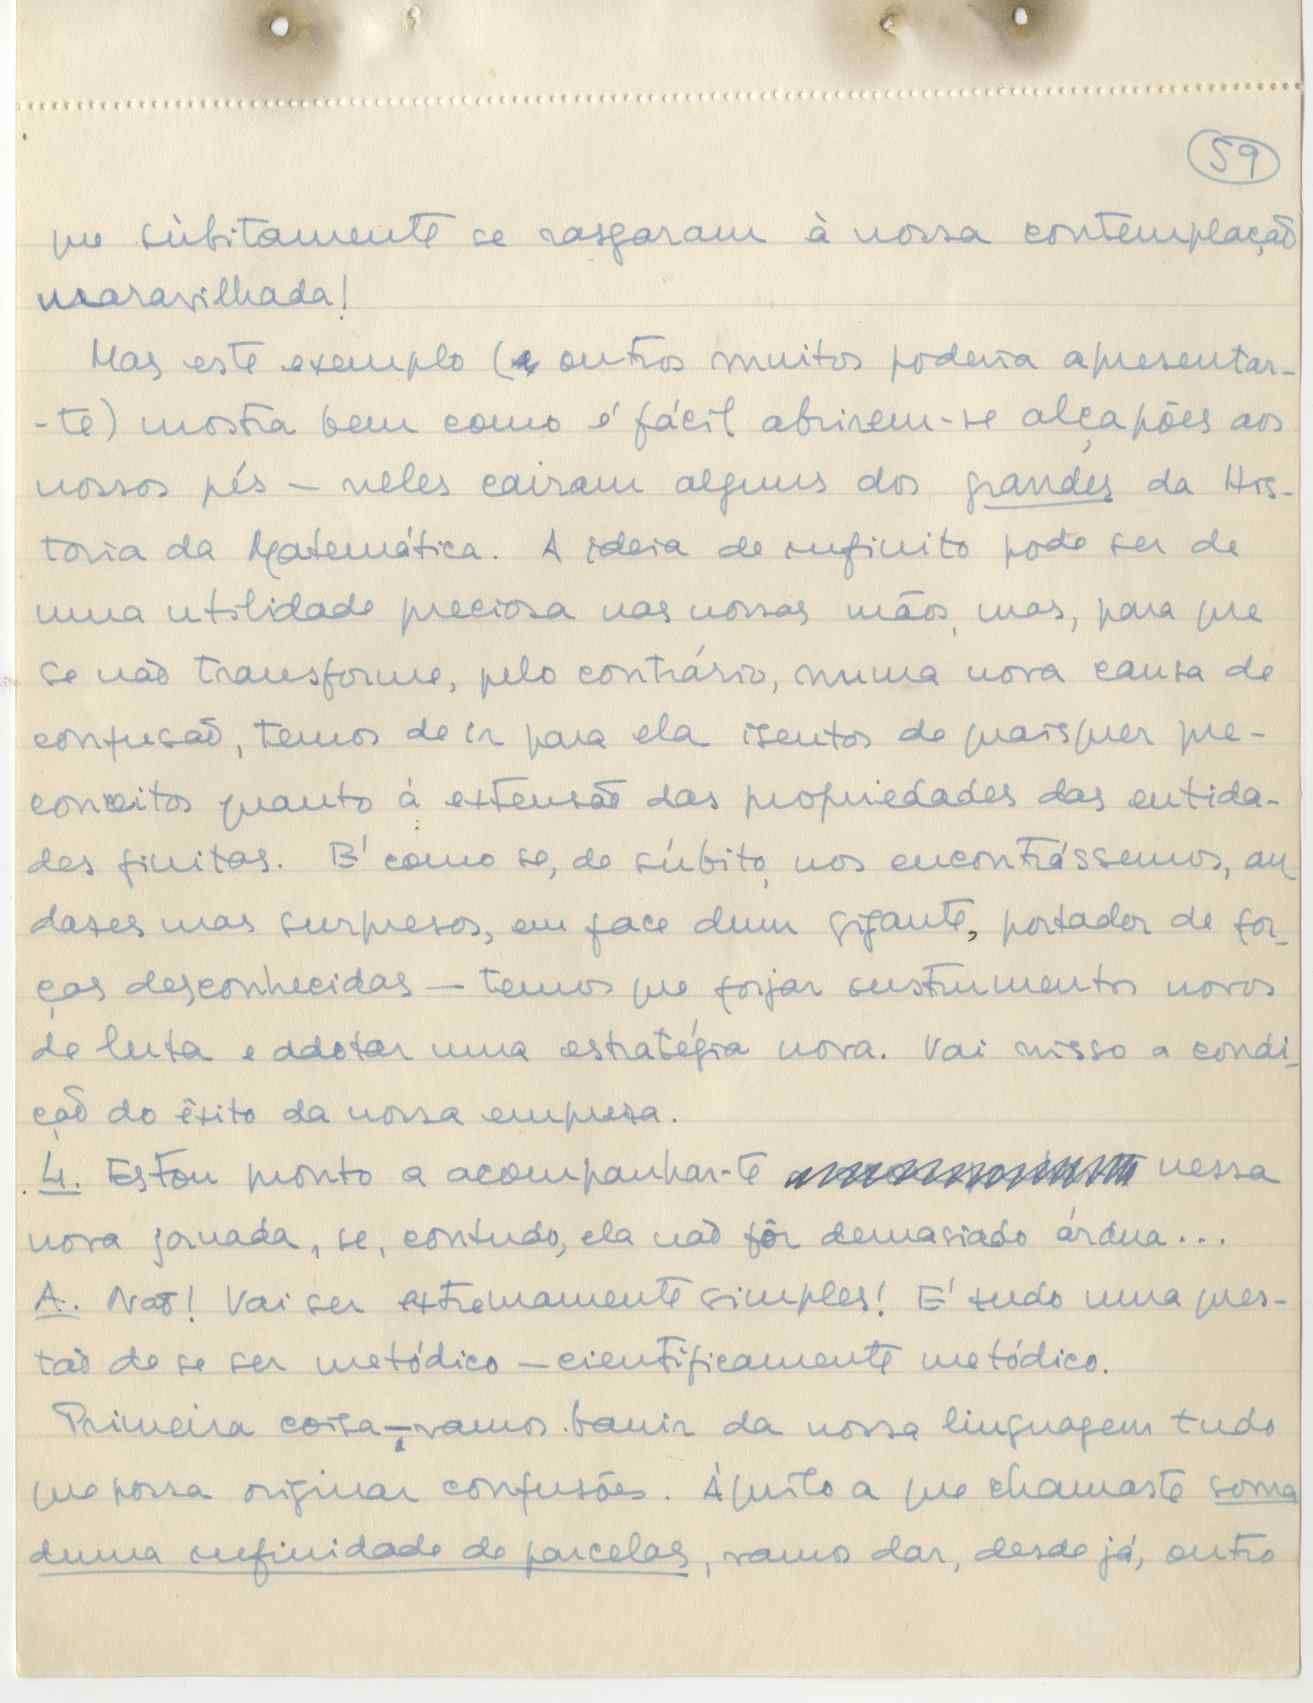 59
que sùbitamente se rasgaram à nossa contemplação
maravilhada!
Mas este exemplo (e outros muitos poderia apresentar-
-te) mostra bem como é fácil abrirem-se alçapões aos
nossos pés — neles cairam alguns dos grandes da His-
toria da Matemática. A ideia de infinito pode ser de
uma utilidade preciosa nas nossas mãos, mas, para que
se não transforme, pelo contrário, numa nova causa de
confusão, temos de ir para ela isentos de quaisquer pre-
conceitos quanto á extensão das propriedades das entida-
des finitas. E' como se, de súbito, nos encontrássemos, au
dazes mas surpresos, em face dum gigante, portador de for-
ças desconhecidas — temos que forjar instrumentos novos
de luta e adotar uma estratégia nova. Vai nisso a condi-
ção do êxito da nossa empresa.
L. Estou pronto a acompanhar-te nessa
nova jornada, se, contudo, ela não fôr demasiado árdua...
A. Não! Vai ser extremamente simples! E' tudo uma ques-
tão de se ser metódico — cientificamente metódico.
Primeira coisa — vamos banir da nossa linguagem tudo
que possa originar confusões. Áquilo a que chamaste soma
duma infinidade de parcelas, vamos dar, desde já, outro